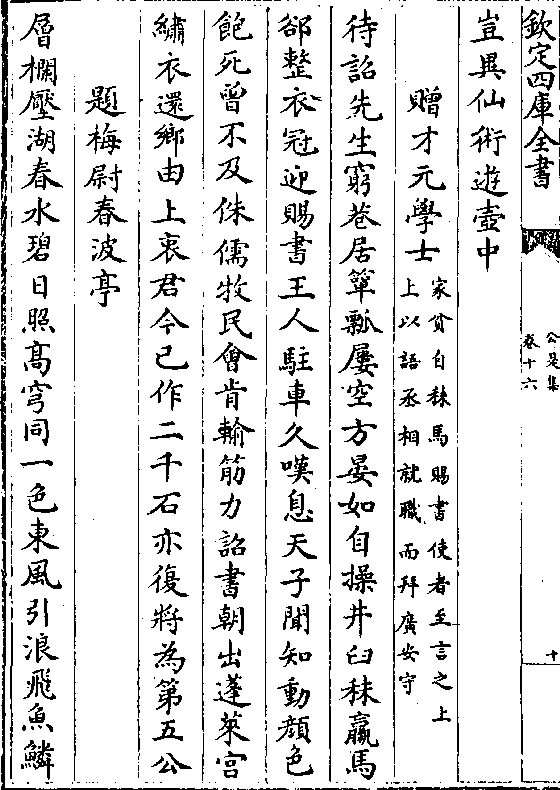 欽定四庫全書
公是集
卷十六
十
豈異仙術遊壺中
贈才元學士
家貧自秣馬賜書使者至言之上
上以語丞相就職而拜廣安守
待詔先生窮巷居簞瓢屢空方晏如自操井臼秣羸馬
郤整衣冠迎賜書王人駐車久嘆息天子聞知動顔色
飽死曾不及侏儒牧民會肯輸筋力詔書朝出蓬萊宫
繡衣還鄉由上衷君今已作二千石亦復將為第五公
題梅尉春波亭
層欄壓湖春水碧日照髙穹同一色東風引浪飛魚鱗